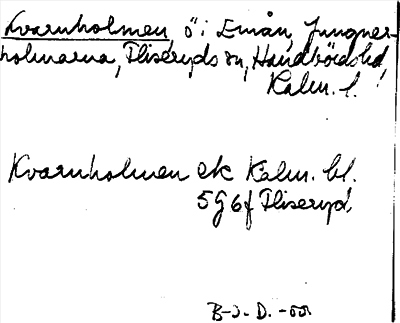 Kvarnholmen, ö i Emån, Jungner-
holmarna, Fliseryds sn, Handbörds hd
Kalm. l.
Kvarnholmen ek Kalm. bl.
5G6f Fliseryd.
B-J. D. -55.